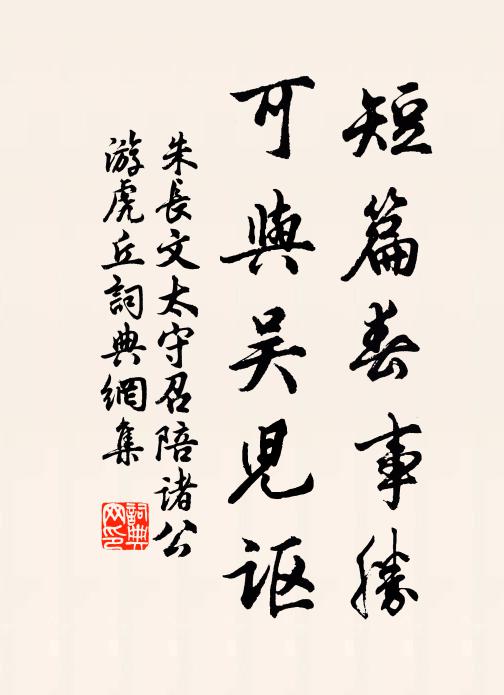 短篇春事勝
可與吳兒謳
朱長文太守召陪諸公
游虎丘詞典網集
詞典
网印